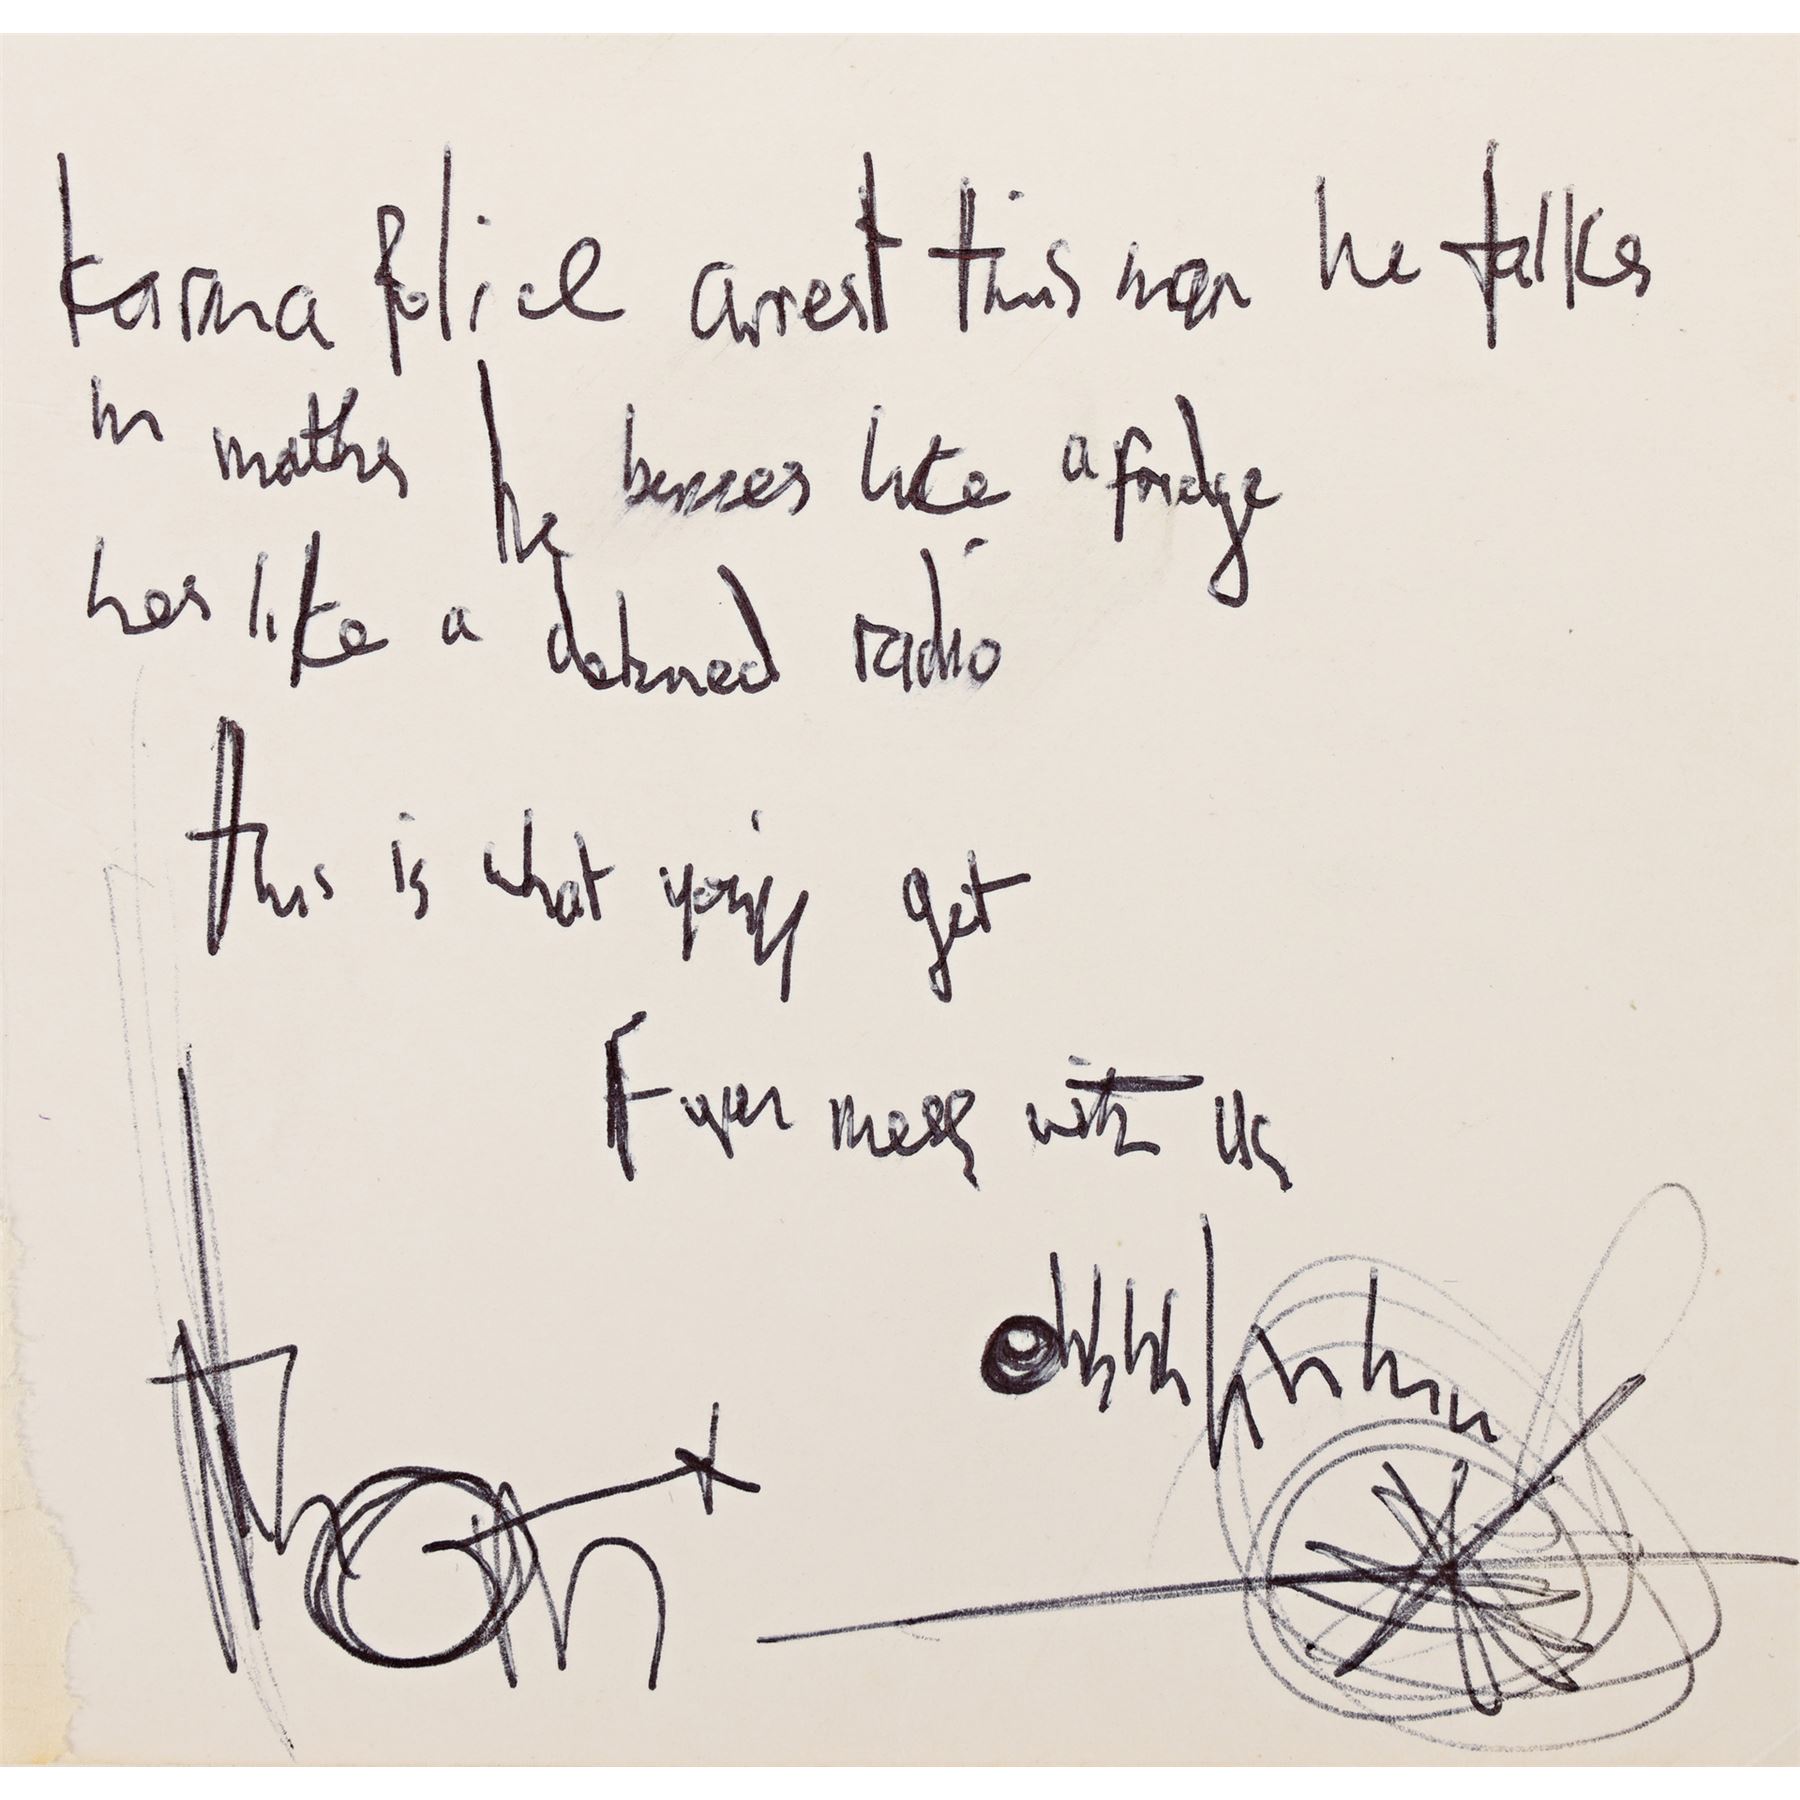 karma police arrest this man he talks
in maths he buzzes like a fridge
hes like a detuned radio
this is what you get
if you mess with us
ohhhhhhhhh
thom x